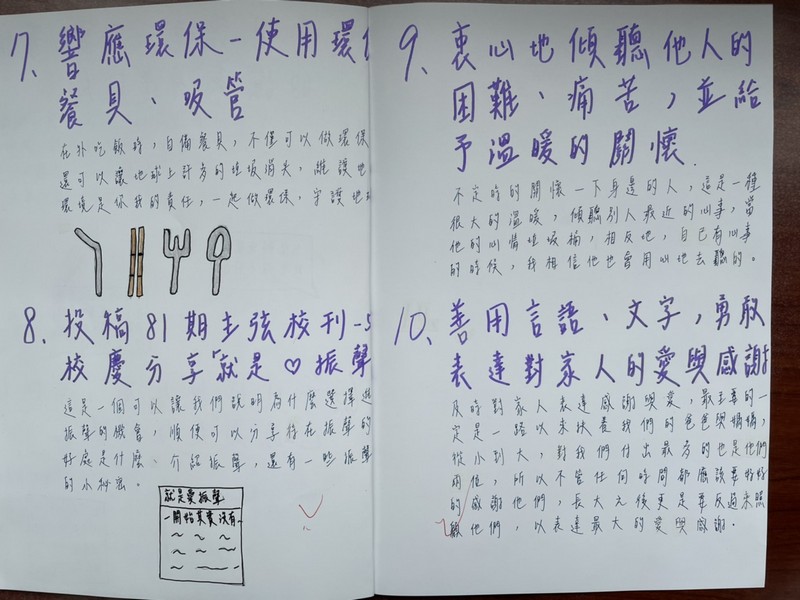 7、響應環保-使用環
餐具、吸管
在外吃飯時，自備餐具，不僅可以做環保
還可以讓地球上許多的垃圾消失，維護地
環境是你我的責任，一起做環保，守護地
8、投稿81期主弦校刊-5
校慶分享就是♡振聲
這是一個可以讓我們說明為什麼選擇
振聲的機會，順便可以分享待在振聲的
好處是什麼、介紹振聲，還有一些振聲
的小秘密。
就是愛振聲
一開始其實沒有~
9、衷心地傾聽他人的
困難、痛苦，並給
予溫暖的關懷.
不定時的關懷一下身邊的人，這是一種
很大的溫暖，傾聽別人最近的心事，當
他的心情垃圾桶，相反地，自己有心事
的時候，我相信他也會用心地去聽的。
10、善用言語、文字，勇敢
表達對家人的愛與感謝
及時對家人表達感謝與愛，最主要的一
定是一路以來扶養我們的爸爸與媽媽，
從小到大，對我們付出最多的也是他們
兩位，所以不管任何時間都應該要好好
的感謝他們，長大之後更是要反過來照
顧他們，以表達最大的愛與感謝。